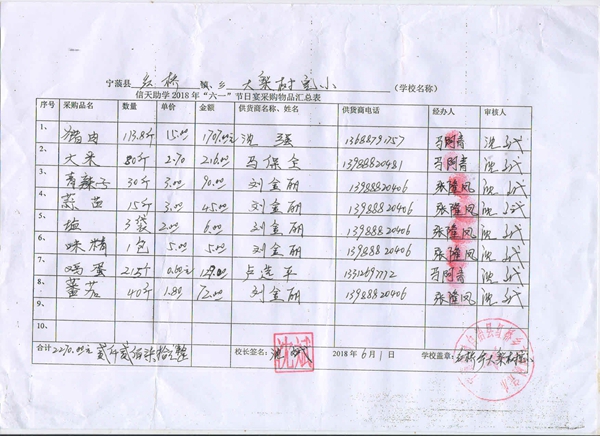 宁蒗县 红桥 镇、乡 大梁村完小 (学校名称)
信天助学2018年“六一”节日宴采购物品汇总表
序号 采购品名 数量 单价 金额 供货商名称、姓名 供货商电话 经办人 审核人
1、 猪肉 113.8斤 15.00 1707.00元 沈强 13688791757 马阿奇
2、 大米 80斤 2.70 216.00 马保全 13988820481 马阿奇
3、 青辣子 30斤 3.00 90.00 刘金丽 13988820406 张隆凤
4、 蒜苗 15斤 3.00 45.00 刘金丽 13988820406 张隆凤
5、 盐 3袋 2.00 6.00 刘金丽 13988820406 张隆凤
6、 味精 1包 5.00 5.00 刘金丽 13988820406 张隆凤
7、 鸡蛋 215个 0.60元 129.00 卢选平 马阿奇
8、 蕃茄 40斤 1.80 72.00 刘金丽 13988820406 张隆凤
9、
10、
合计 2270.00元 贰仟贰佰柒拾元整 校长签名: 2018年6月1日 学校盖章: 红桥乡大梁村完小